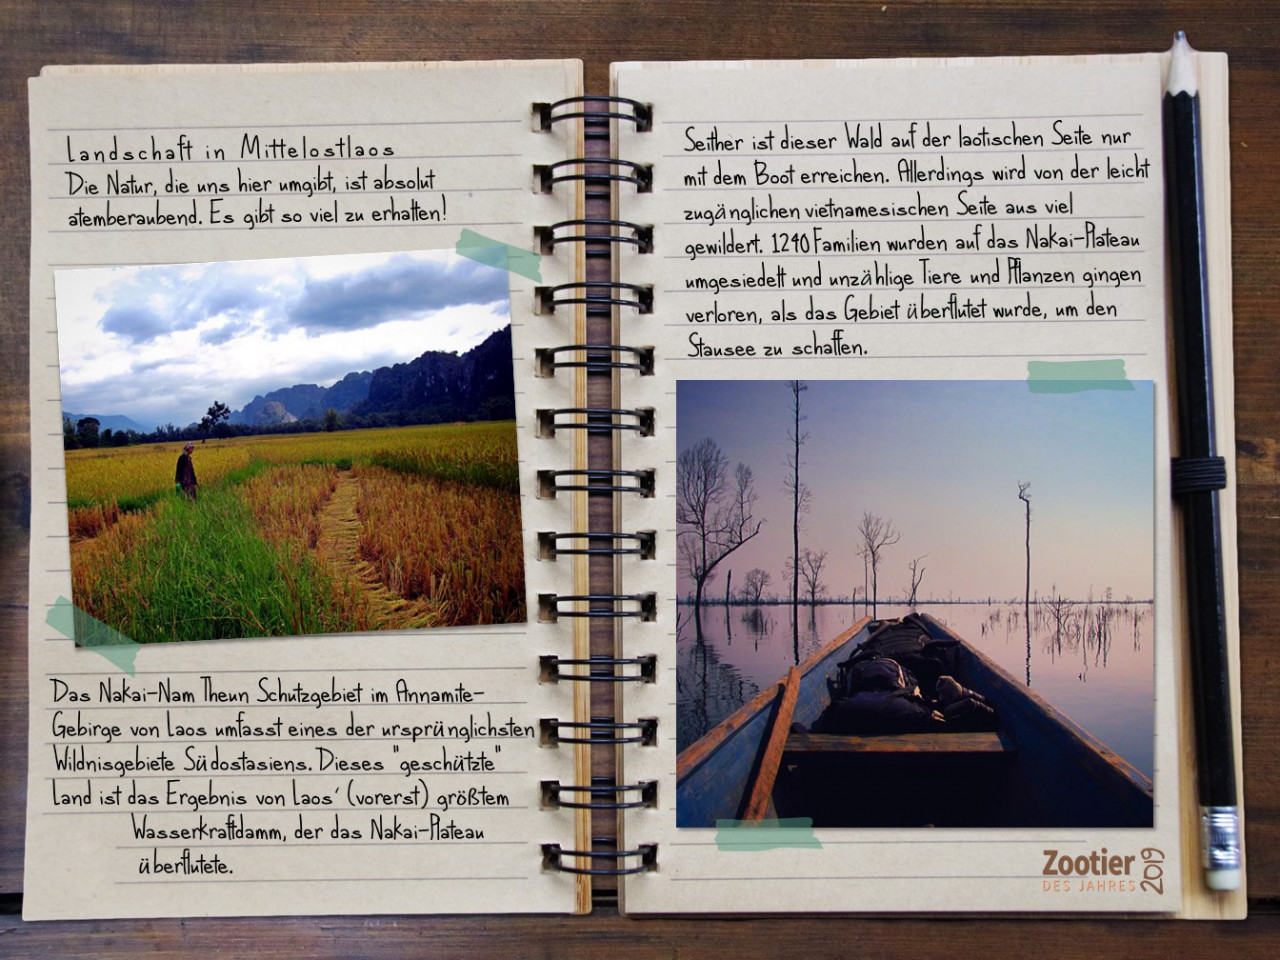 Landschaft in Mittelostlaos
Die Natur, die uns hier umgibt, ist absolut
atemberaubend. Es gibt so viel zu erhalten!
Das Nakai-Nam Theun Schutzgebiet im Annamite-
Gebirge von Laos umfasst eines der ursprünglichsten
Wildnisgebiete Südostasiens. Dieses "geschützte"
Land ist das Ergebnis von Laos' (vorerst) größtem
Wasserkraftdamm, der das Nakai-Plateau
überflutete.
Seither ist dieser Wald auf der laotischen Seite nur
mit dem Boot erreichen. Allerdings wird von der leicht
zugänglichen vietnamesischen Seite aus viel
gewildert. 1240 Familien wurden auf das Nakai-Plateau
umgesiedelt und unzählige Tiere und Pflanzen gingen
verloren, als das Gebiet überflutet wurde, um den
Stausee zu schaffen.
Zootier
DES JAHRES
2019